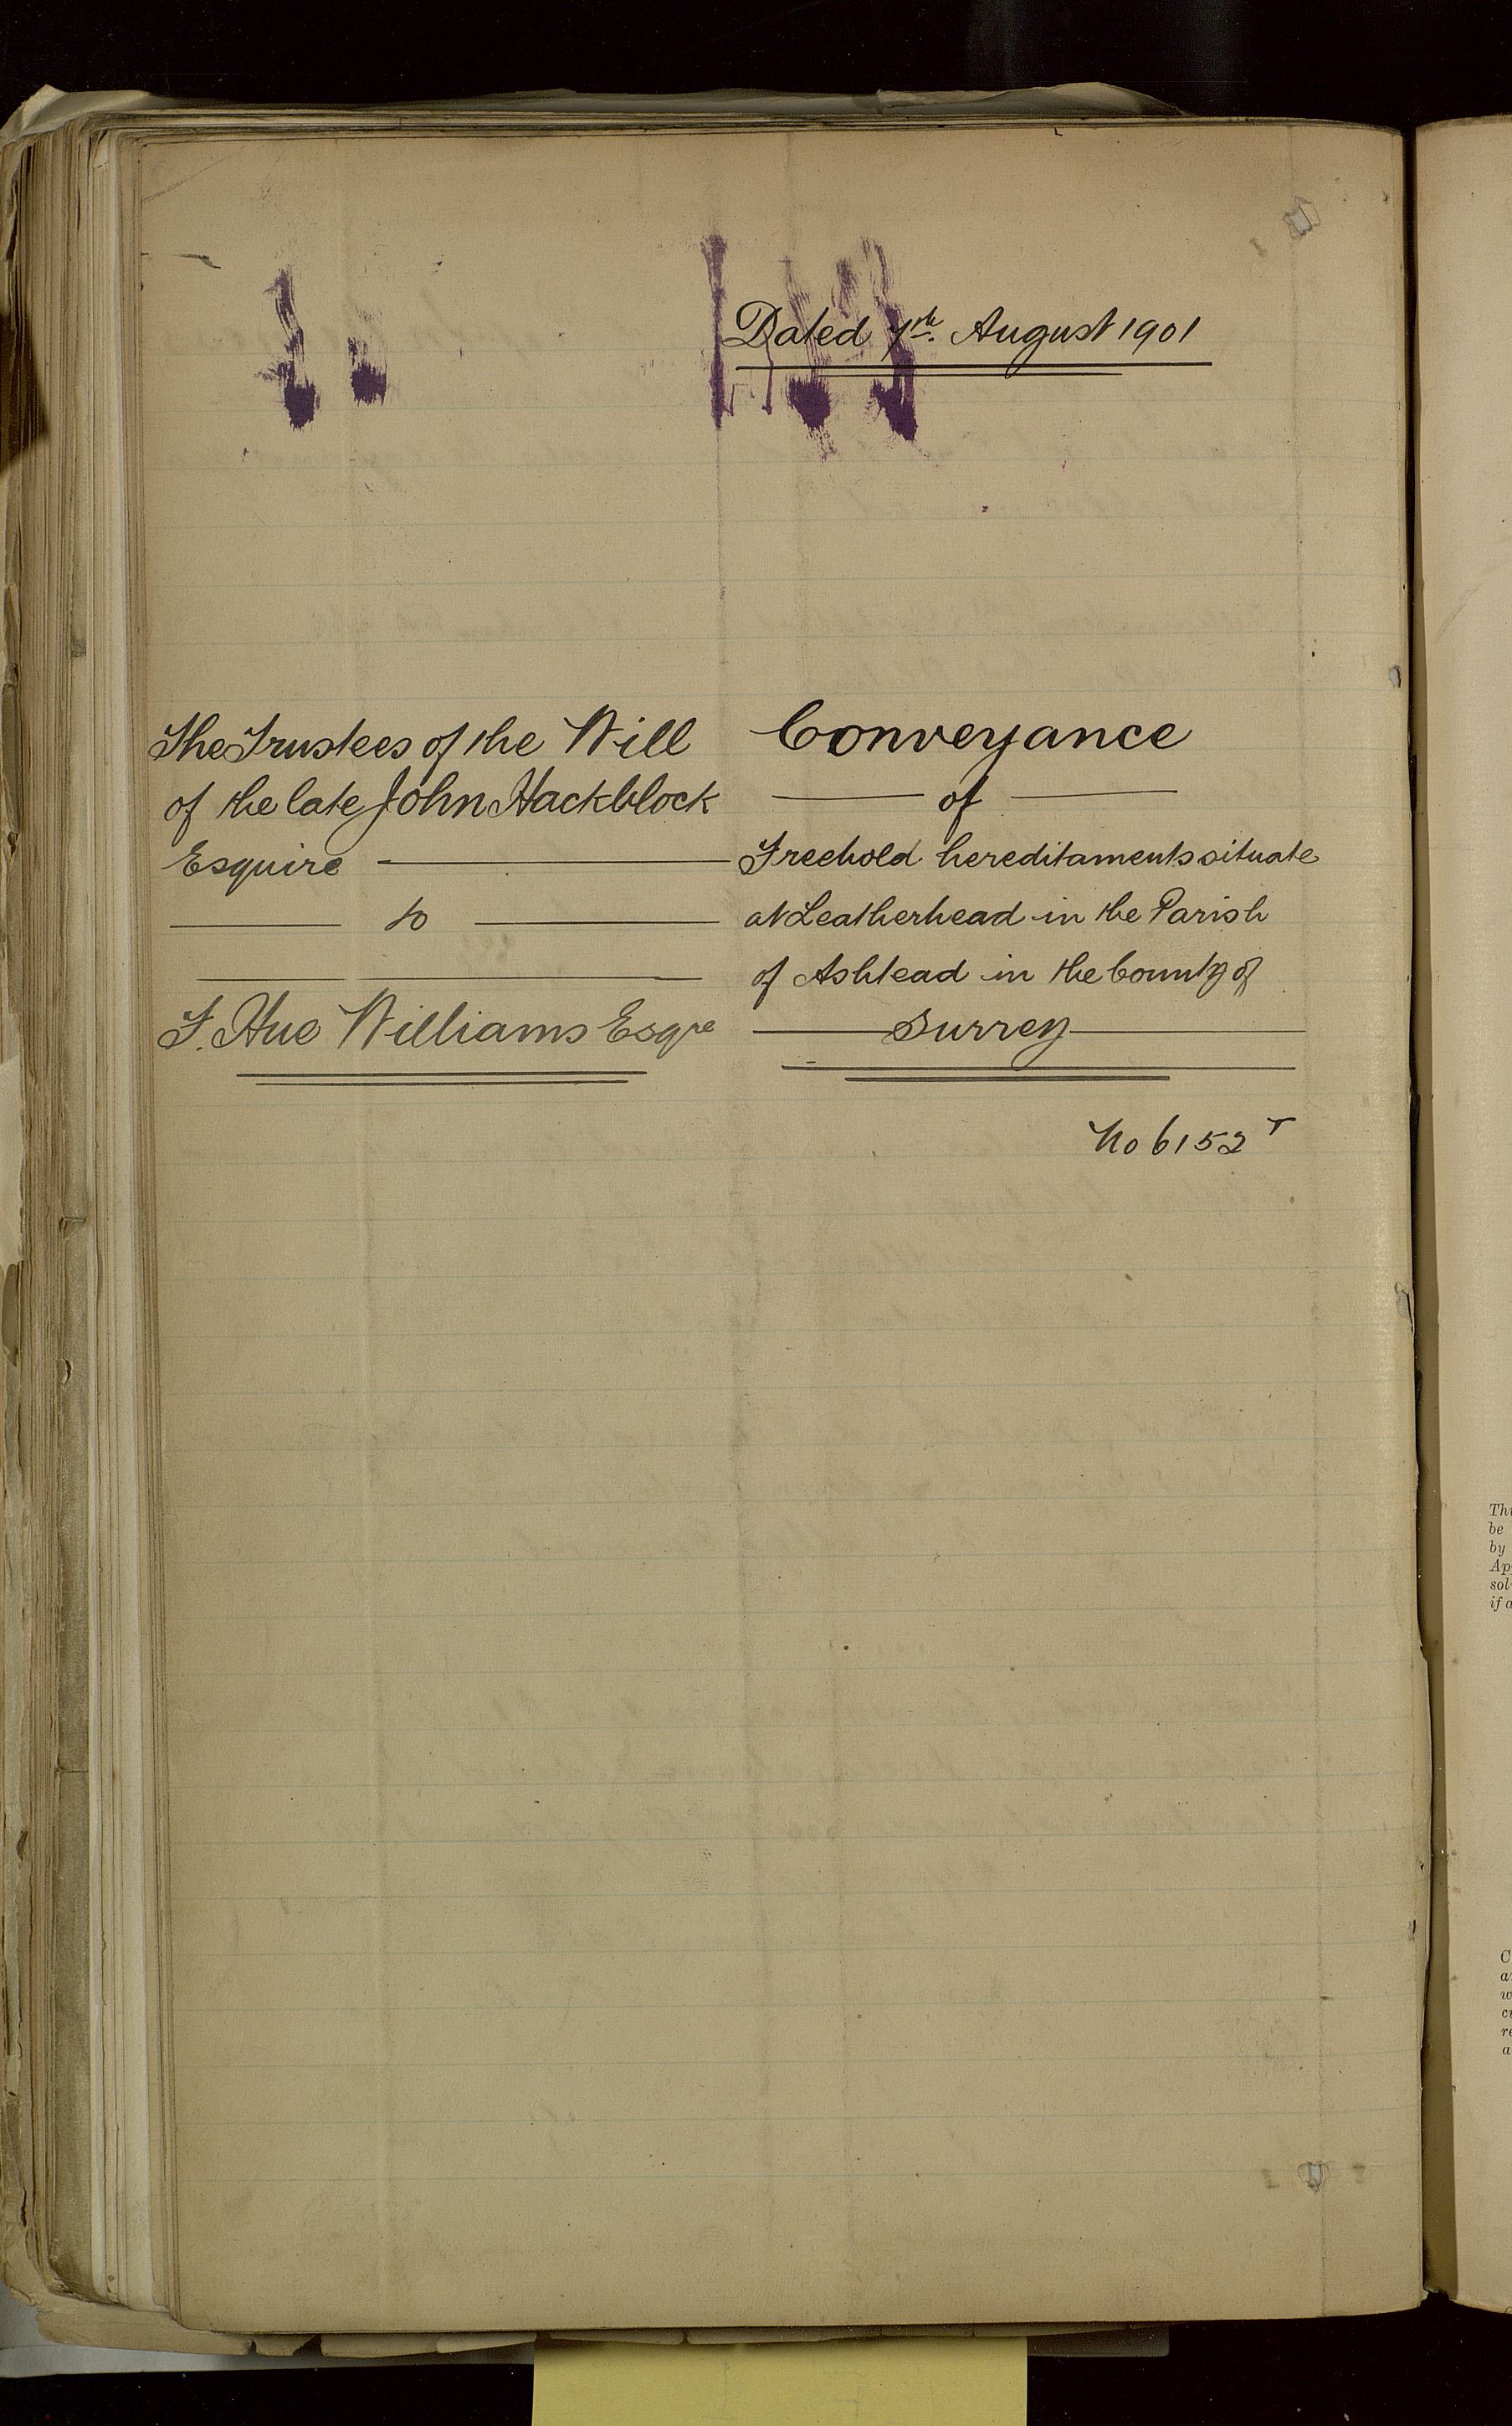 Dated 7th. August 1901
The Trustees of the Will
of the late John Hackblock
Esquire
to
F. Hue Williams Esqre
Conveyance
of
Freehold hereditaments situate
at Leatherhead in the Parish
of Ashtead in the County of
Surrey
No 6152
be
by